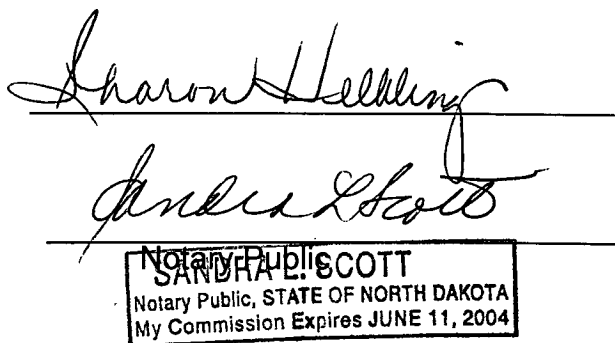 Sharon Helbling
Sandra L Scott
Notary Public
SANDRA L. SCOTT
Notary Public, STATE OF NORTH DAKOTA
My Commission Expires JUNE 11, 2004